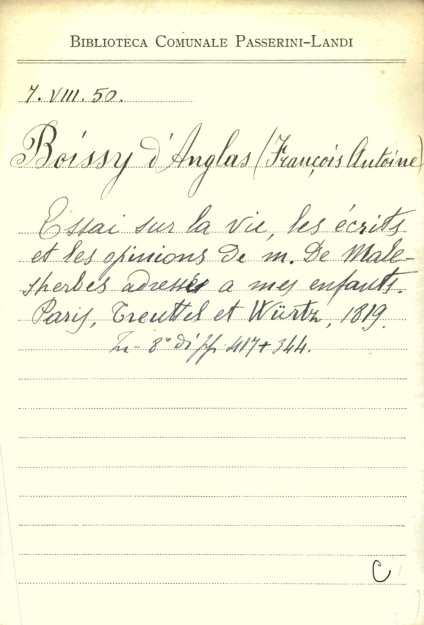 BIBLIOTECA COMUNALE PASSERINI-LANDI
7. VIII. 50.
Boissy d'Anglas (François Antoine)
Essai sur la vie, les écrits
et les opinions de m. De Male-
sherbes adressés a mes enfants.
Paris, Treuttel et Würtz, 1819.
In-8° di pp 417+344.
C